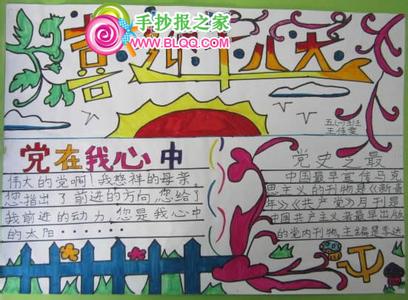 手抄报之家
www.BLQQ.com
喜迎十八大
五(一)班
王佳雯
党在我心中
伟大的党啊！我慈祥的母亲，
您指出了前进的方向您给了
我前进的动力，您是我心中
的太阳······
党史之最
中国最早宣传马克
思主义的刊物是《新青
年》《共产党》月刊是
中国共产主义者最早出版
的党内刊物，主编是李达